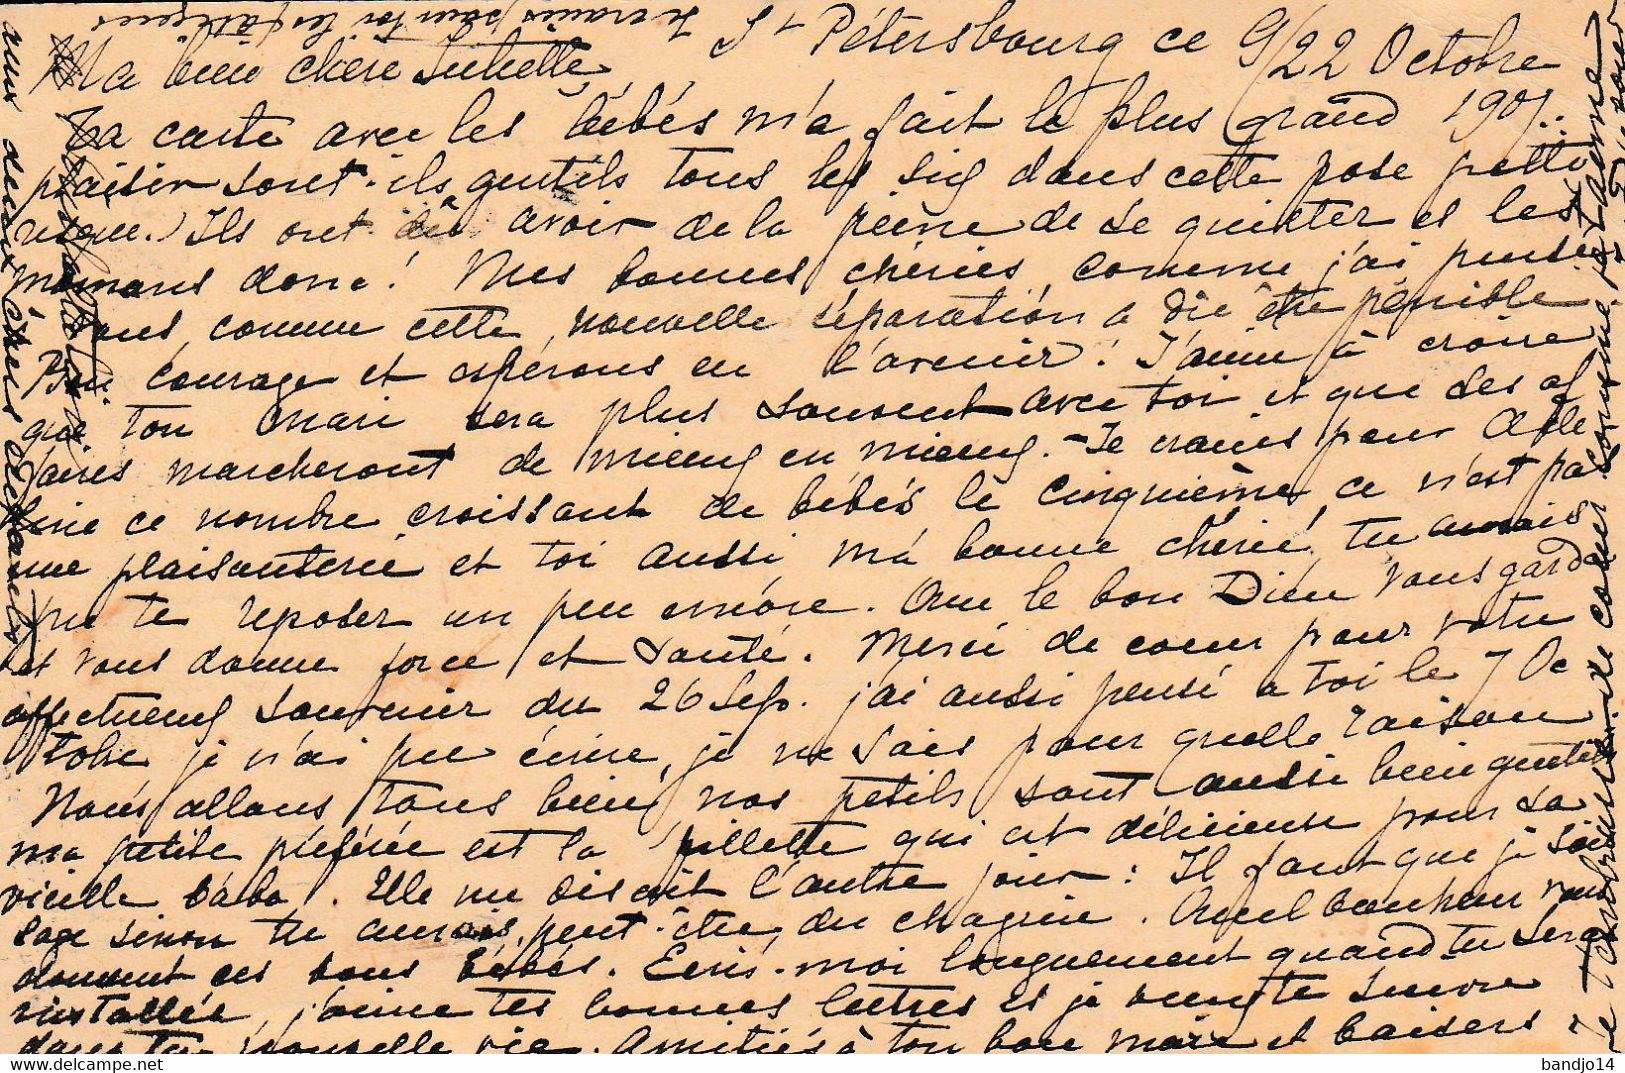 St Pétersbourg ce 9/22 Octobre
Ma bien chère Juliette, 1901.
Ta carte avec les bébés m'a fait le plus grand
plaisir sont-ils gentils tous les six dans cette pose pitto
resque. Ils ont dû avoir de la peine de se quitter et les
mamans donc! Mes bonnes chéries, comme j'ai pensé à
vous, comme cette nouvelle séparation a dû être pénible
Bon courage et espérons en l'avenir! J'aime à croire
que ton mari sera plus souvent avec toi et que ses af
faires marcheront de mieux en mieux. - Je crains pour Adé
line ce nombre croissant de bébés le cinquième, ce n'est pas
une plaisanterie et toi aussi ma bonne chérie, tu aurais
pu te reposer un peu encore. Que le bon Dieu vous garde
et vous donne force et santé. Merci de coeur pour votre
affectueux souvenir du 26 Sep. j'ai aussi pensé à toi le 7 Oc
tobre je n'ai pu écrire, je ne sais pour quelle raison
Nous allons tous bien, nos petits sont aussi bien gentils
ma petite préférée est la fillette qui est délicieuse pour sa
vieille baba. Elle me disait l'autre jour: Il faut que je sois
sage sinon tu aurais, peut-être, du chagrin. Quel bonheur vous
donnent ces bons bébés. Ecris-moi longuement quand tu seras
installée, j'aime tes bonnes lettres et je veux te suivre
dans ta nouvelle vie. Amitiés à ton bon mari et baisers
aux deux chers
Je crains pour toi les fatigues
Je t'embrasse de coeur comme je t'aime
bandjo14